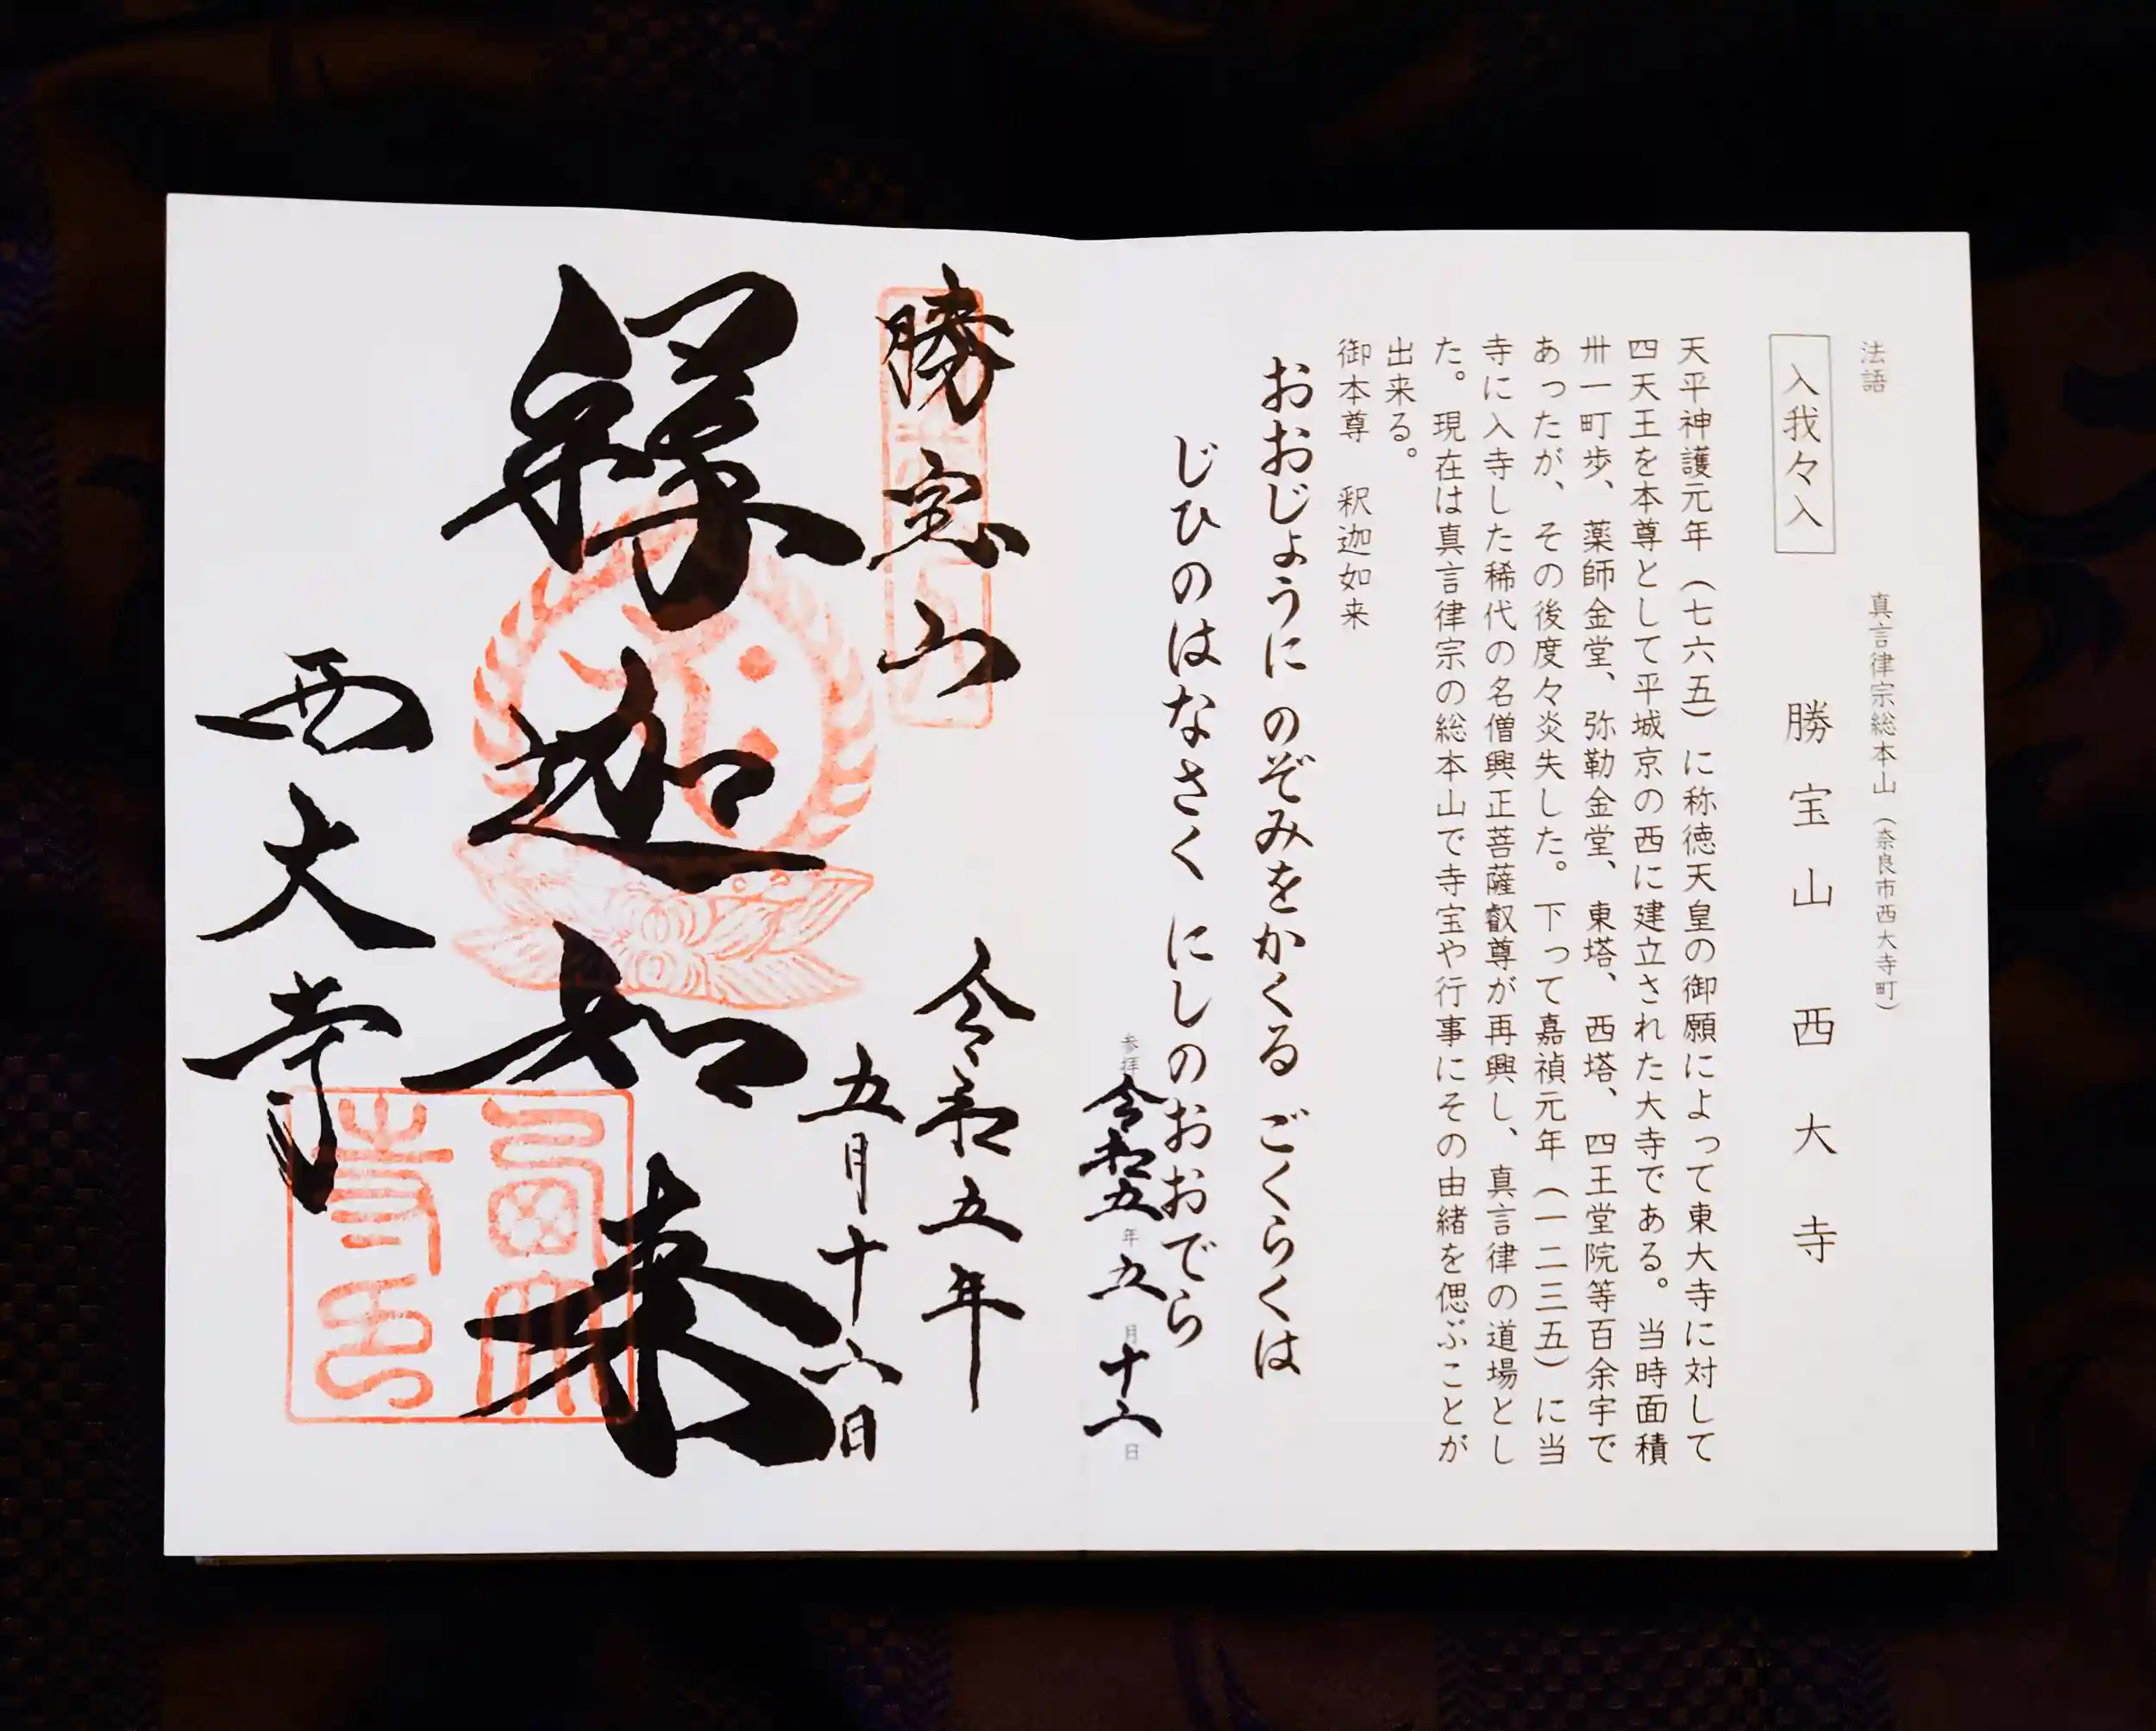 法語
入我々入
真言律宗総本山（奈良市西大寺町）
勝宝山 西大寺
天平神護元年（七六五）に称徳天皇の御願によって東大寺に対して
四天王を本尊として平城京の西に建立された大寺である。当時面積
卅一町歩、薬師金堂、弥勒金堂、東塔、西塔、四王堂院等百余宇で
あったが、その後度々炎失した。下って嘉禎元年（一二三五）に当
寺に入寺した稀代の名僧興正菩薩叡尊が再興し、真言律の道場とし
た。現在は真言律宗の総本山で寺宝や行事にその由緒を偲ぶことが
出来る。
御本尊 釈迦如来
おおじょうに のぞみをかくる ごくらくは
じひのはなさく にしのおおでら
参拝 令和五年五月十六日
勝宝山
令和五年
五月十六日
釋迦如来
西大寺